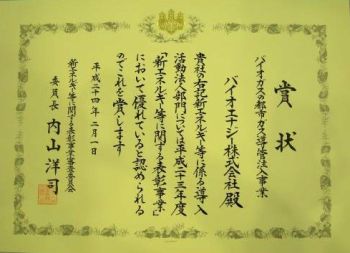 賞状
バイオガスの都市ガス導管注入事業
バイオエナジー株式会社 殿
貴社の右記新エネルギー等に係る導入
活動法人部門については平成二十三年度
「新エネルギー等に関する表彰事業」
において優れていると認められる
のでこれを賞します
平成二十四年二月一日
新エネルギー等に関する表彰事業審査委員会
委員長 内山洋司